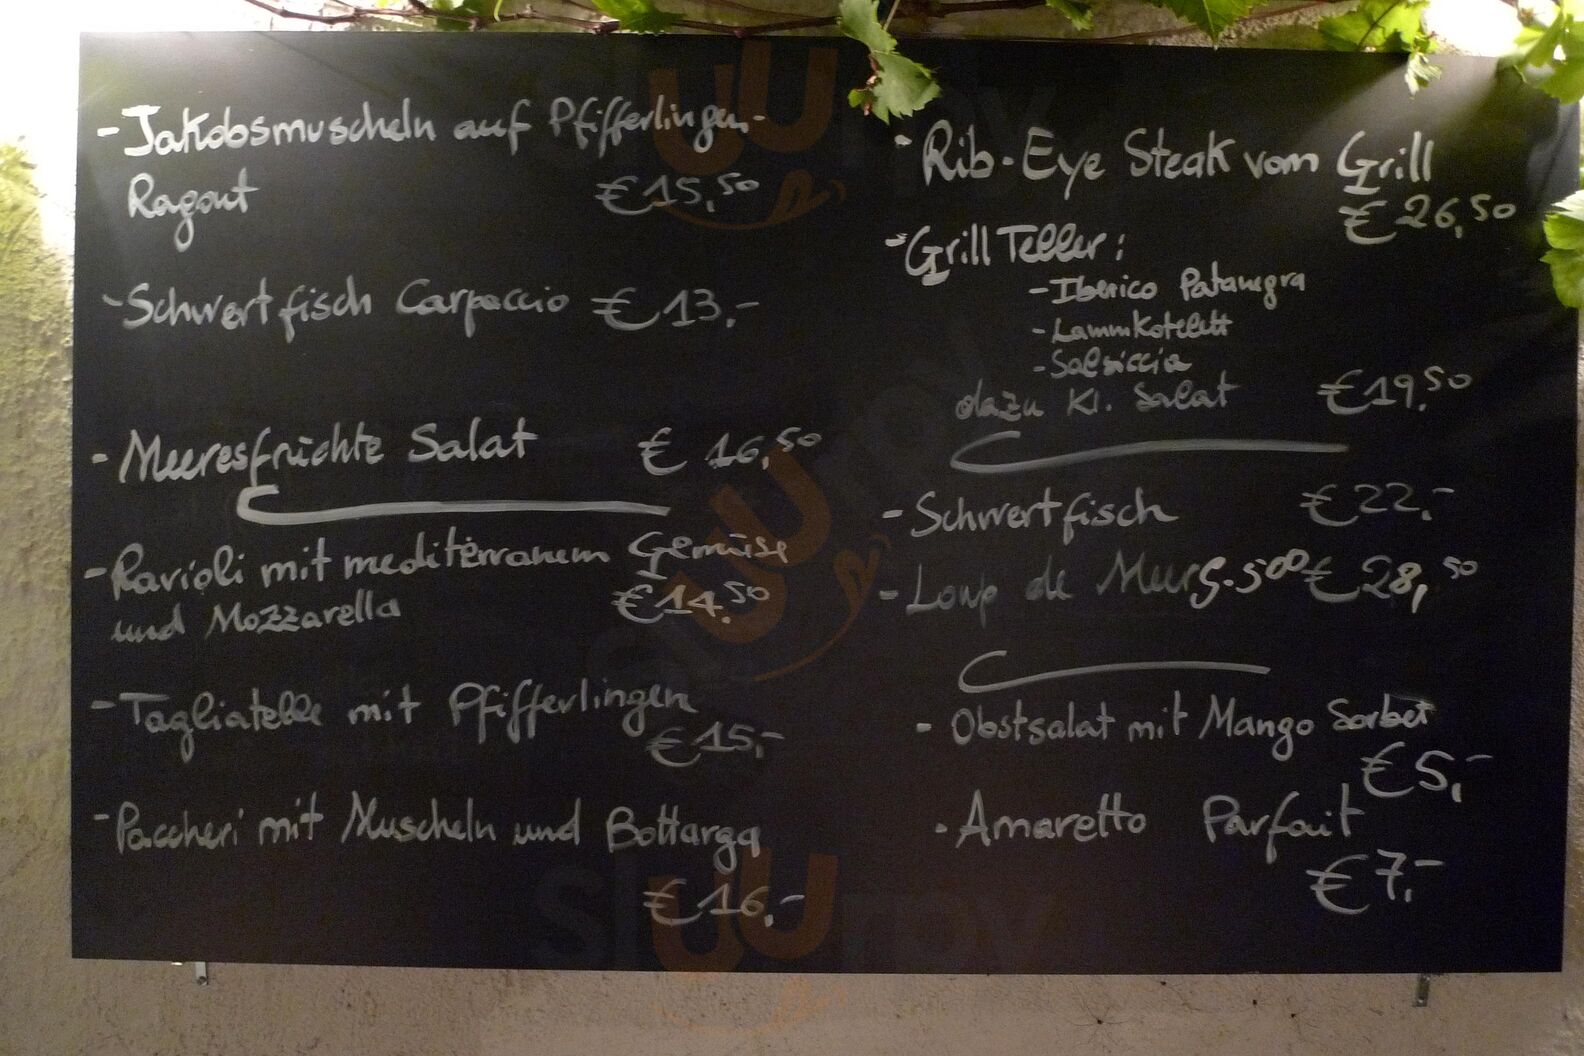 - Jakobsmuscheln auf Pfifferlingen-
Ragout €15,50
- Schwertfisch Carpaccio €13,-
- Meeresfrüchte Salat € 16,50
- Ravioli mit mediterranem Gemüse
und Mozzarella €14,50
- Tagliatelle mit Pfifferlingen
€15,-
- Paccheri mit Muscheln und Bottarga
€16,-
- Rib-Eye Steak vom Grill
€26,50
- Grill Teller:
- Iberico Patanegra
- Lammkotelett
- Salsiccia
dazu Kl. Salat €19,50
- Schwertfisch €22,-
- Loup de Meer €28,50
- Obstsalat mit Mango Sorbet
€5,-
- Amaretto Parfait
€7,-